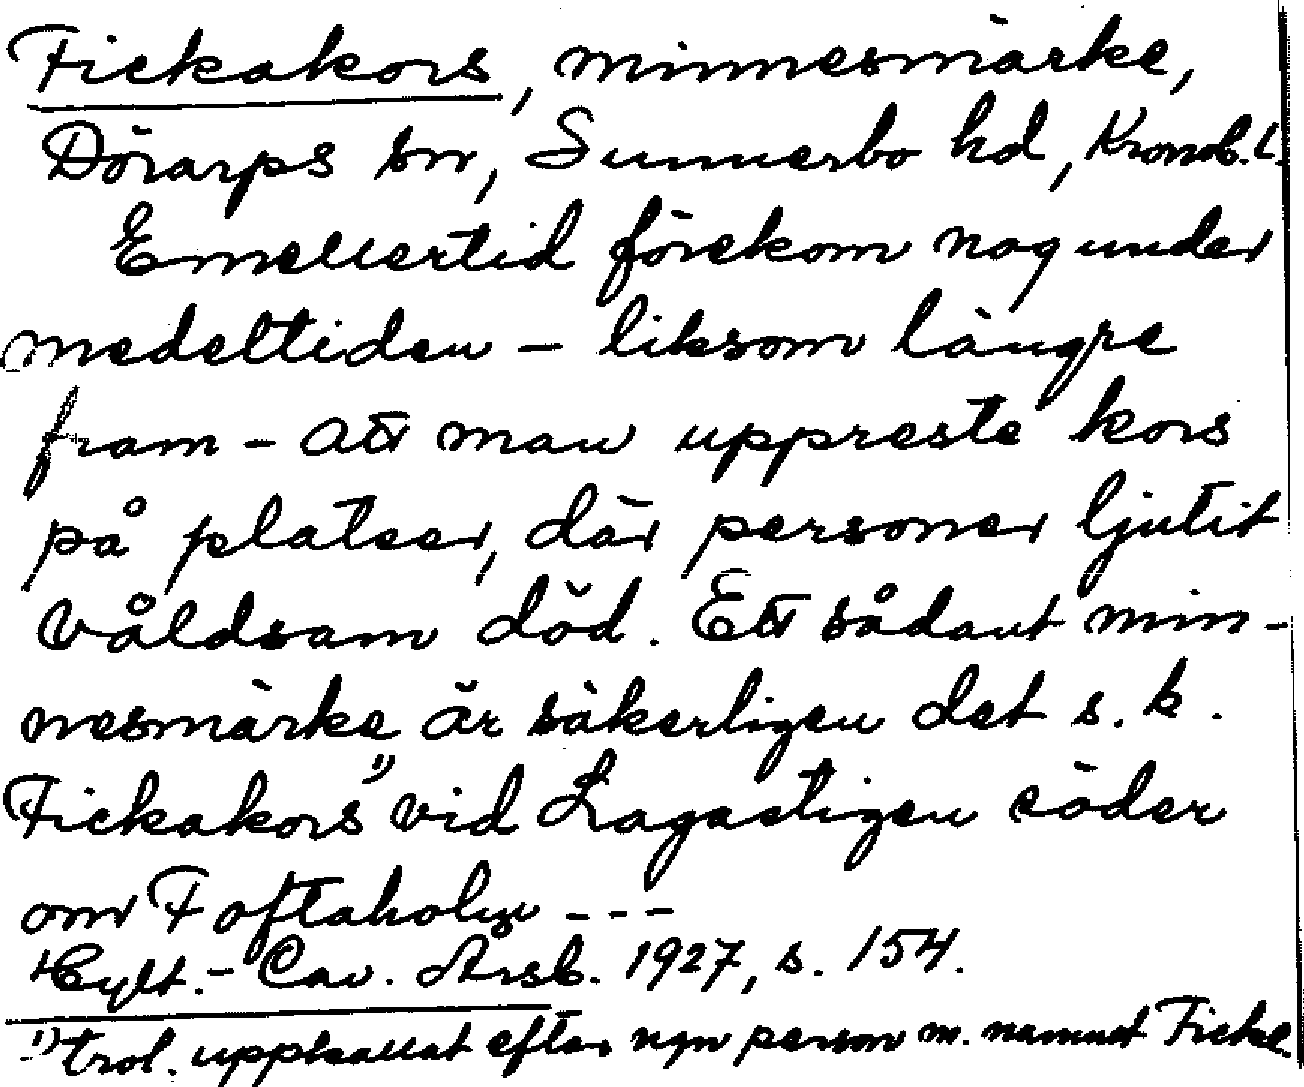 Fickakors, minnesmärke,
Dörarps sn, Sunnerbo hd, Kronob. L.
Emellertid förekom nog under
medeltiden - liksom längre
fram - att man uppreste kors
på platser, där personer ljutit
våldsam död. Ett sådant min-
nesmärke är säkerligen det s.k.
Fickakors 1) vid Lagastigen söder
om Toftaholm ---
Hylt.-Cav. Årsb. 1927, s. 154.
1) Trol. uppkallat efter ngn person m. namnet Ficke.